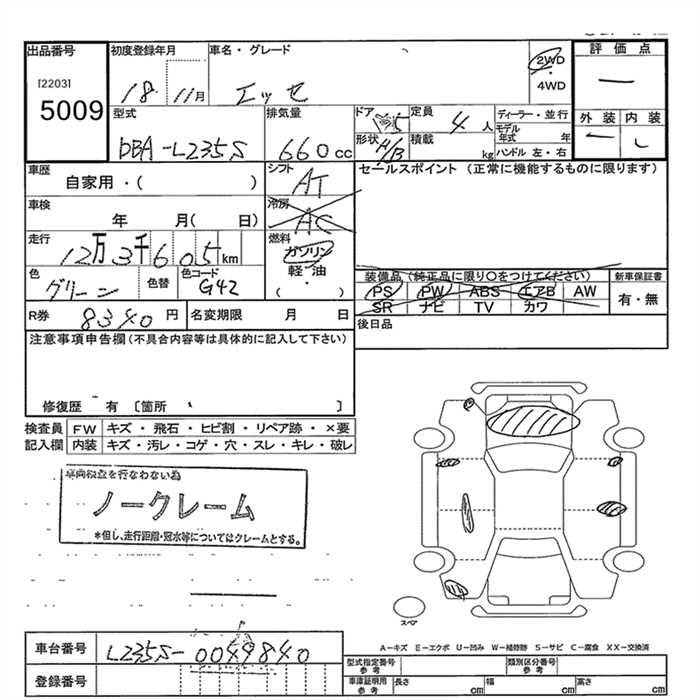 出品番号
[2203]
5009
初度登録年月
18 11月
車名・グレード
エッセ
2WD
・
4WD
評価点
ー
外装 内装
型式
DBA-L235S
排気量
660cc
ドア
5
形状
H/B
定員
4人
積載
kg
ディーラー・並行
モデル
年式 年
ハンドル 左・右
車歴
自家用・( )
シフト
AT
セールスポイント (正常に機能するものに限ります)
車検
年 月( 日)
冷房
AC
走行
12万3千605km
燃料
ガソリン
軽・油
( )
色
グリーン
色替
色コード
G42
装備品(純正品に限り○をつけてください)
新車保証書
PS PW ABS エアB AW
SR ナビ TV カワ
有・無
R券 8340円
名変期限 月 日
後日品
注意事項申告欄(不具合内容等は具体的に記入して下さい)
修復歴 有 〔箇所 〕
検査員 FW キズ・飛石・ヒビ割・リペア跡・×要
記入欄 内装 キズ・汚レ・コゲ・穴・スレ・キレ・破レ
車両検査を行なわない為
ノークレーム
*但し、走行距離・冠水等についてはクレームとする。
スペア
A-キズ E-エクボ U-凹み W-補修跡 S-サビ C-腐食 XX-交換済
車台番号 L235S-0049840
登録番号
型式指定番号
参考
類別区分番号
参考
車庫証明用
参考
長さ cm 幅 cm 高さ cm